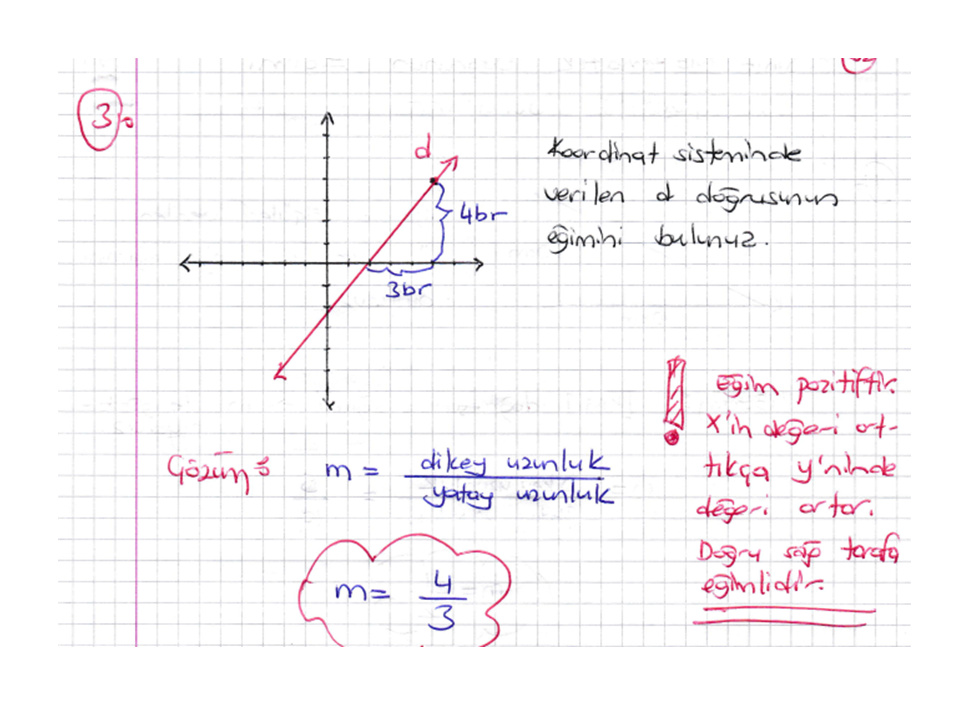 3.
d
4br
3br
Koordinat sisteminde
verilen d doğrusunun
eğimini bulunuz.
Çözüm:
m = dikey uzunluk
yatay uzunluk
m = 4
3
Eğim pozitiftir.
X'in değeri art-
tıkça y'ninde
değeri artar.
Doğru sağ tarafa
eğimlidir.